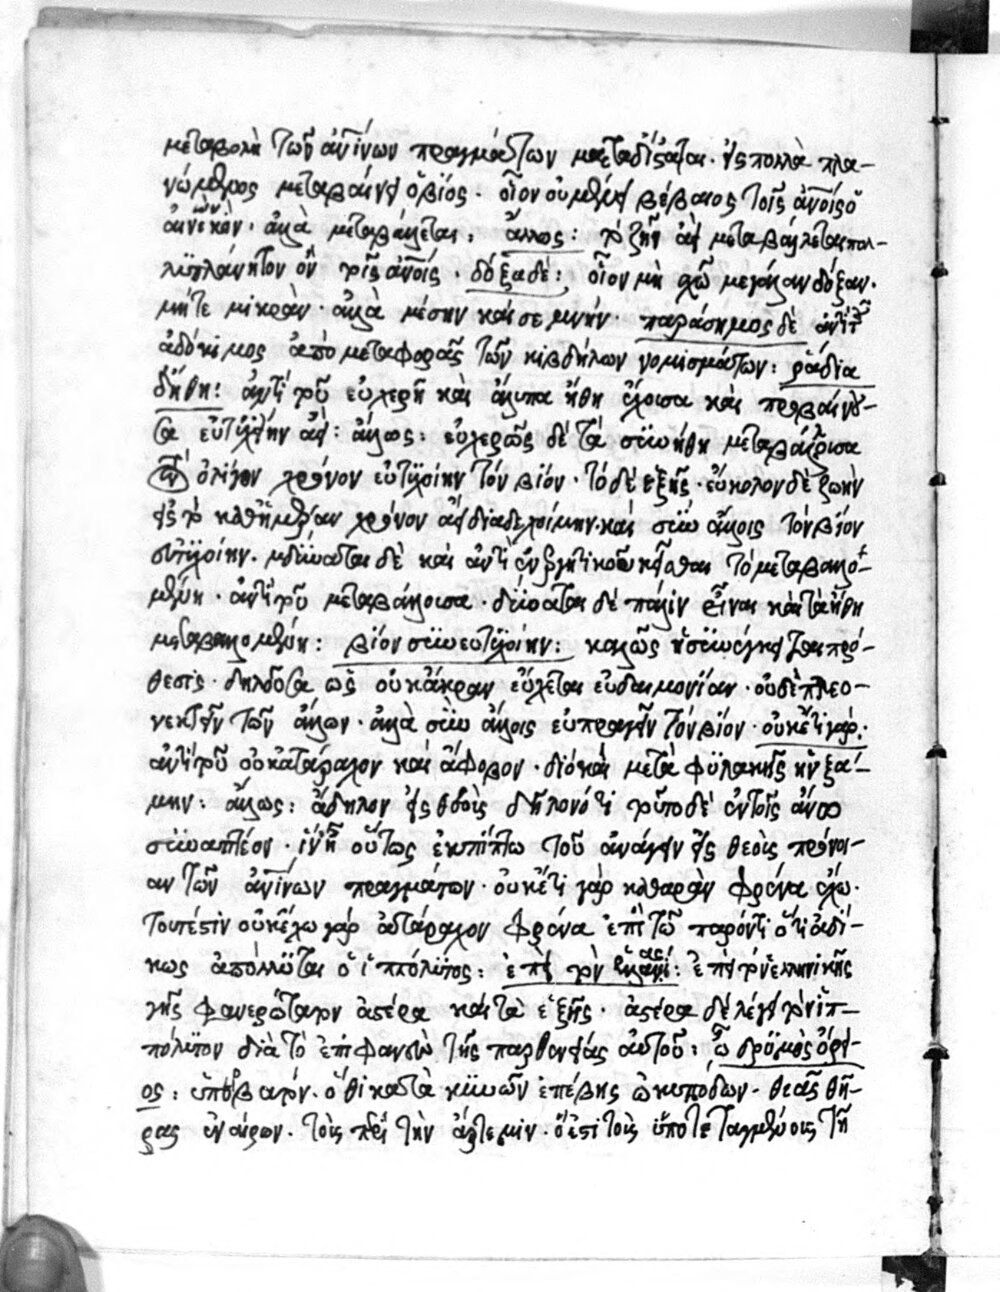 μεταβολὴ τῶν ἀν̅ίνων πραγμάτων μεταδίδοται. εἰς πολλὰ πλα-
νώμενος μεταβαίνει ὁ βίος. οἷον οὐ μένει βέβαιος τοῖς ἀν̅οις ὁ
ἀλλὰ μεταβάλλεται: ἄλλως: τὸ ζῆν ἀεὶ μεταβάλλεται πολ-
λυπλάνητον ὂν τοῖς ἀν̅οις. δόξα δὲ: οἷον μὴ ἔχω μεγάλαν δόξαν.
μήτε μικρὰν. ἀλλὰ μέσην καὶ σεμνήν παράσημος δὲ ἀντὶ τοῦ
ἀδόκιμος ἀπὸ μεταφορᾶς τῶν κιβδήλων νομισμάτων: ῥάδια
δ' ἤθη: ἀντὶ τοῦ εὐχερῆ καὶ ἄλυπα ἤθη ἔχοισα καὶ προβαίνον-
τα εὐτυχεῖν ἀεί: ἄλλως: εὐχερῶς δὲ τὰ σὺν ἤθη μεταβάλλοισα
ὀλίγον χρόνον εὐτυχοίην τὸν βίον. τὸ δὲ ἑξῆς. εὔκολον δὲ ζωὴν
εἰς τὸ καθημέραν χρόνον ἀεὶ διαδεχοίμην. καὶ σὺν ἄλλοις τὸν βίον
εὐτυχοίην. δύναται δὲ καὶ ἀντὶ ἐνεργητικοῦ κεῖσθαι τὸ μεταβαλλο-
μένη. ἀντὶ τοῦ μεταβάλλοισα. δύναται δὲ πάλιν εἶναι κατὰ ἤθη
μεταβαλλομένη: βίον συνευτυχοίην: καλῶς ἡ σὺν ἔγκειται πρό-
θεσις. δηλοῦσα ὡς οὐκ ἄκραν εὔχεται εὐδαιμονίαν. οὐδὲ πλεο-
νεκτεῖν τῶν ἄλλων. ἀλλὰ σὺν ἄλλοις εὐπραγεῖν τὸν βίον. οὐκέτι γὰρ:
ἀντὶ τοῦ οὐκ ἀτάραχον καὶ ἄφοβον. διὸ καὶ μετὰ φυλακῆς ηὐξά-
μην: ἄλλως: ἄδηλον εἰς θεοὺς δηλονότι τοῦτο δὲ ἐν τοῖς ἄνω
συναπτέον. ἵν' ᾖ οὕτως ἐκπίπτω τοῦ ἀνάγειν εἰς θεοὺς πρόνοι-
αν τῶν ἀν̅ίνων πραγμάτων. οὐκέτι γὰρ καθαρὰν φρένα ἔχω.
τουτέστιν οὐκ ἔχω γὰρ ἀτάραχον φρένα ἐπὶ τῷ παρόντι ὅτι ἀδί-
κως ἀπόλλυται ὁ ἱππόλυτος: ἐπεὶ τὸν : ἐπεὶ τὸν ἑλληνικῆς
γῆς φανερώτατον ἀστέρα καὶ τὰ ἑξῆς. ἀστέρα δὲ λέγει τὸν ἱπ-
πόλυτον διὰ τὸ ἐπιφανὲς τῆς παρθενείας αὐτοῦ: ὦ δρυμὸς ὄρει-
ος: ὑπερβατὸν. ὅθι κατὰ κυνῶν ἐπέβης ὠκυπόδων. θεᾶς θῆ-
ρας ἐναίρων. τοὺς περὶ τὴν ἄρτεμιν. ὅ ἐστι τοὺς ὑποτεταγμένους τῇ